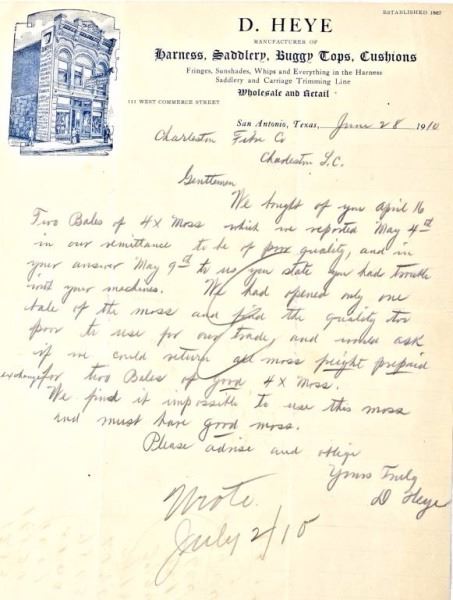 ESTABLISHED 1867
D. HEYE
MANUFACTURER OF
Harness, Saddlery, Buggy Tops, Cushions
Fringes, Sunshades, Whips and Everything in the Harness
Saddlery and Carriage Trimming Line
Wholesale and Retail
111 WEST COMMERCE STREET
San Antonio, Texas, June 28 1910
Charleston Fibre Co
Charleston S.C.
Gentlemen
We bought of you April 16
Two Bales of 4X Moss which we reported May 4th
in our remittance to be of poor quality, and in
your answer May 9th to us you state you had trouble
with your machines. We had opened only one
bale of the moss and find the quality too
poor to use for our trade, and would ask
if we could return all moss freight prepaid
exchange for two Bales of good 4X Moss.
We find it impossible to use this moss
and must have good moss.
Please advise and oblige
Yours Truly
D Heye
Wrote
July 2/10